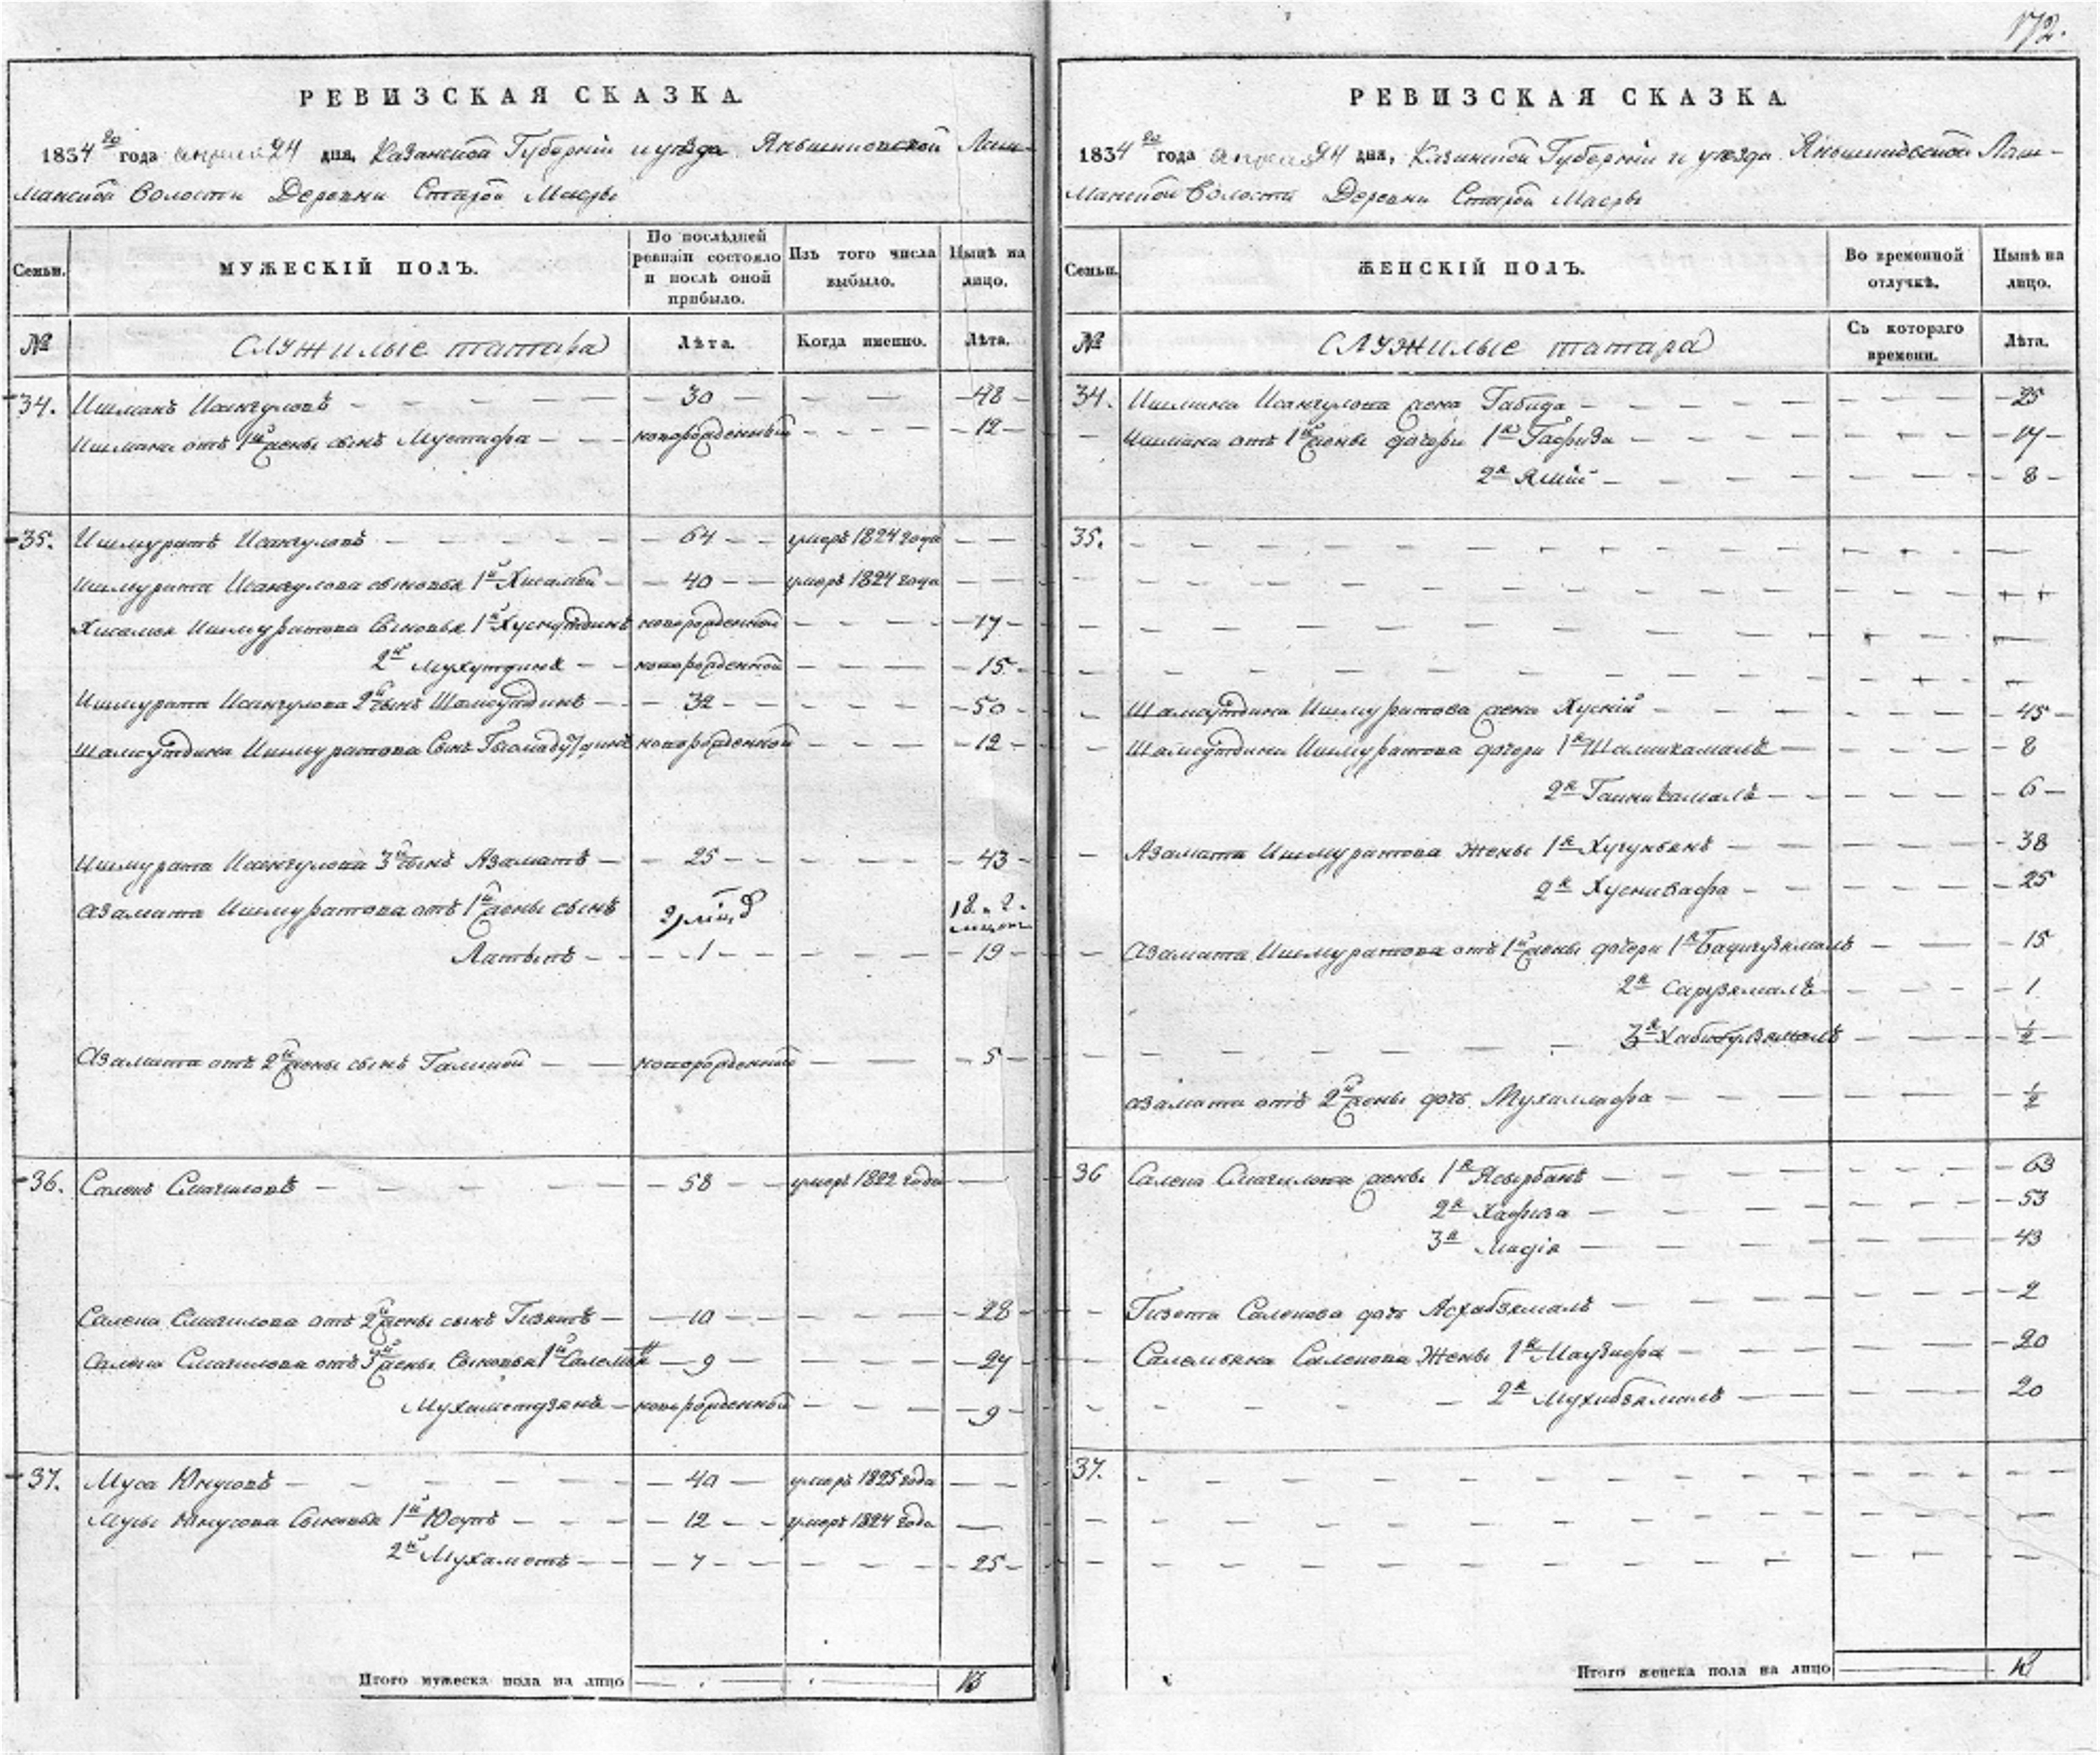 172.
РЕВИЗСКАЯ СКАЗКА.
1834го года апреля 24 дня, Казанской Губернiи и уезда Янышиповской Лаш-
манской Волости Деревни Старой Масры
Семьи.
МУЖЕСКІЙ ПОЛЪ.
По послѣдней ревизіи состояло и послѣ оной прибыло.
Изъ того числа выбыло.
Нынѣ на лицо.
№
Служилые татара
Лѣта.
Когда именно.
Лѣта.
34. Ишманъ Исангуловъ 30 48
Ишмана отъ 1й жены сынъ Мустафа новорожденный 12
35. Ишмуратъ Исангуловъ 64 умеръ 1824 года
Ишмурата Исангулова сыновья 1й Хисамей 40 умеръ 1824 года
Хисамея Ишмуратова Сыновья 1й Хуснутдинъ новорожденной 17
2й Мухутдинъ новорожденной 15
Ишмурата Исангулова 2й сынъ Шамсутдинъ 32 50
Шамсутдина Ишмуратова Сынъ новорожденной 12
Ишмурата Исангулова 3й сынъ Азаматъ 25 43
Азамата Ишмуратова отъ 1й жены сынъ
Латыпъ 1 19
Азамата отъ 2й жены сынъ Галимей новорожденный 5
36. Саленъ Смагиловъ 58 умеръ 1822 года
Салена Смагилова отъ 2й жены сынъ Гизетъ 10 28
Салена Смагилова отъ 3й жены Сыновья 1й 9 27
Мухаметзянъ новорожденный 9
37. Муса Юнусовъ 40 умеръ 1825 года
Мусы Юнусова Сыновья 1й Юсупъ 12 умеръ 1824 года
2й Мухаметъ 7 25
Итого мужеска пола на лицо
РЕВИЗСКАЯ СКАЗКА.
1834го года апреля 24 дня, Казанской Губернiи и уезда Янышиповской Лаш-
манской Волости Деревни Старой Масры
Семьи.
ЖЕНСКІЙ ПОЛЪ.
Во временной отлучкѣ.
Нынѣ на лицо.
№
Служилые татара
Съ котораго времени.
Лѣта.
34. Ишмана Исангулова жена Габида 25
Ишмана отъ 1й жены дочери 1я Гафиза 17
2я Ямiй 8
35.
Шамсутдина Ишмуратова жена Хуснiй 45
Шамсутдина Ишмуратова дочери 1я Шамикамалъ 8
2я Гайникамалъ 6
Азамата Ишмуратова Жены 1я 38
2я 25
Азамата Ишмуратова отъ 1й жены дочери 1я 15
2я Сарвямалъ 1
3я ½
Азамата отъ 2й жены дочь ½
36 Салена Смагилова жены 1я 63
2я Хафиза 53
3я Мадiя 43
Гизета Саленова дочь Асхабзямалъ 2
Салемьяна Саленова Жены 1я 20
2я Мухибзямалъ 20
37.
Итого женска пола на лицо